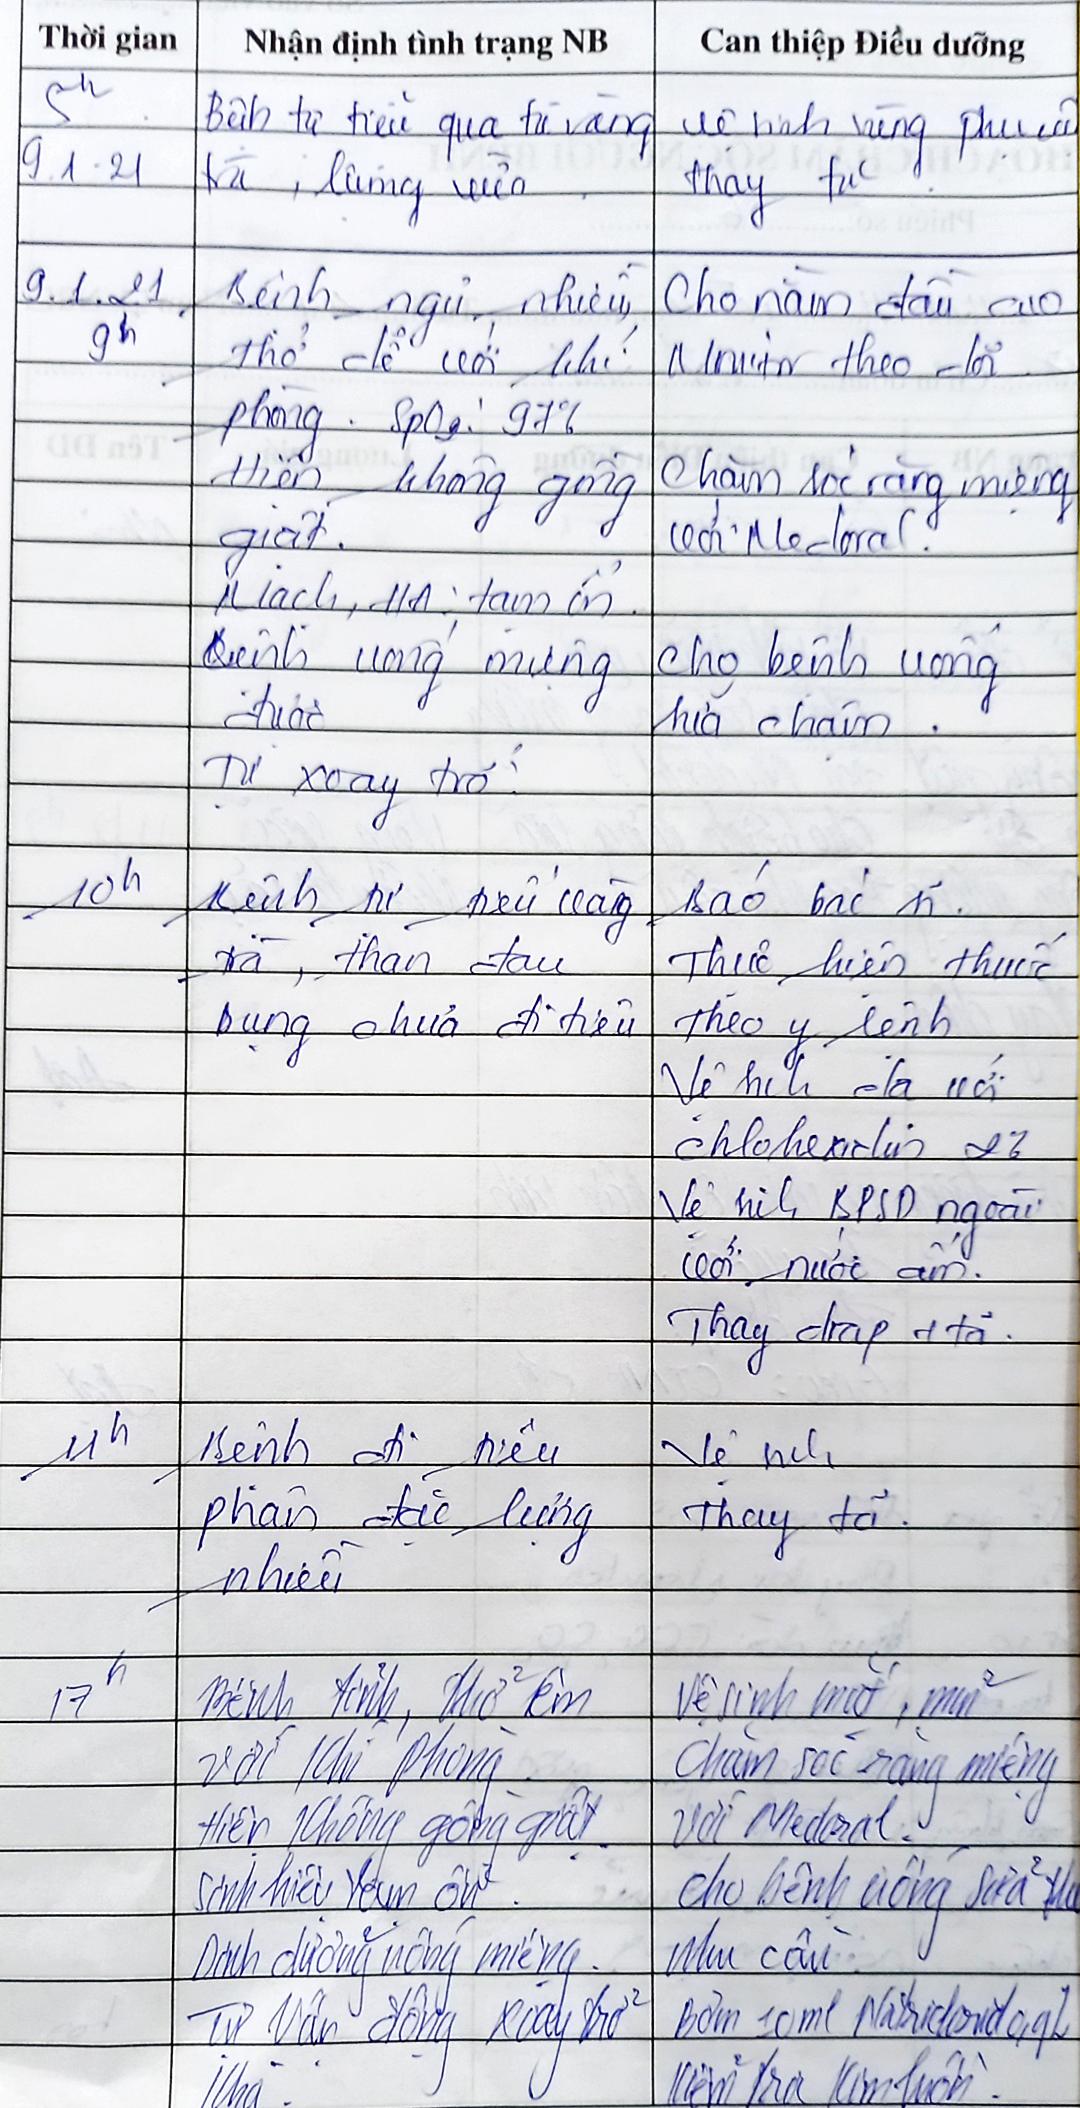 Thời gian
Nhận định tình trạng NB
Can thiệp Điều dưỡng
5h
9.1.21
Bệnh tự tiểu qua tã vàng
trà, lượng vừa
vệ sinh vùng phụ cận
thay tã
9.1.21
9h
Bệnh ngủ nhiều,
thở dễ với khí
phòng. SpO2: 97%
Hiện không gồng
giật.
Mạch, HA: tạm ổn.
Bệnh uống miệng
được
Tự xoay trở.
Cho nằm đầu cao
theo dõi
Chăm sóc răng miệng
với Medoral.
Cho bệnh uống
sữa chậm.
10h
Bệnh tự tiểu vàng
trà, than đau
bụng chưa đi tiêu
Báo bác sĩ.
Thực hiện thuốc
theo y lệnh
Vệ sinh da với
chlohexidin 2%
Vệ sinh BPSD ngoài
với nước ấm.
Thay drap + tã.
11h
Bệnh đi tiêu
phân đặc lượng
nhiều
Vệ sinh
Thay tã.
17h
Bệnh tỉnh, thở êm
với khí phòng
Hiện không gồng giật
Sinh hiệu tạm ổn.
Dinh dưỡng uống miệng.
Tự vận động xoay trở
khá.
Vệ sinh mắt, mũi
Chăm sóc răng miệng
với Medoral.
Cho bệnh uống sữa theo
nhu cầu
Bơm 10ml Natriclorid 0,9%
Kiểm tra kim luồn.